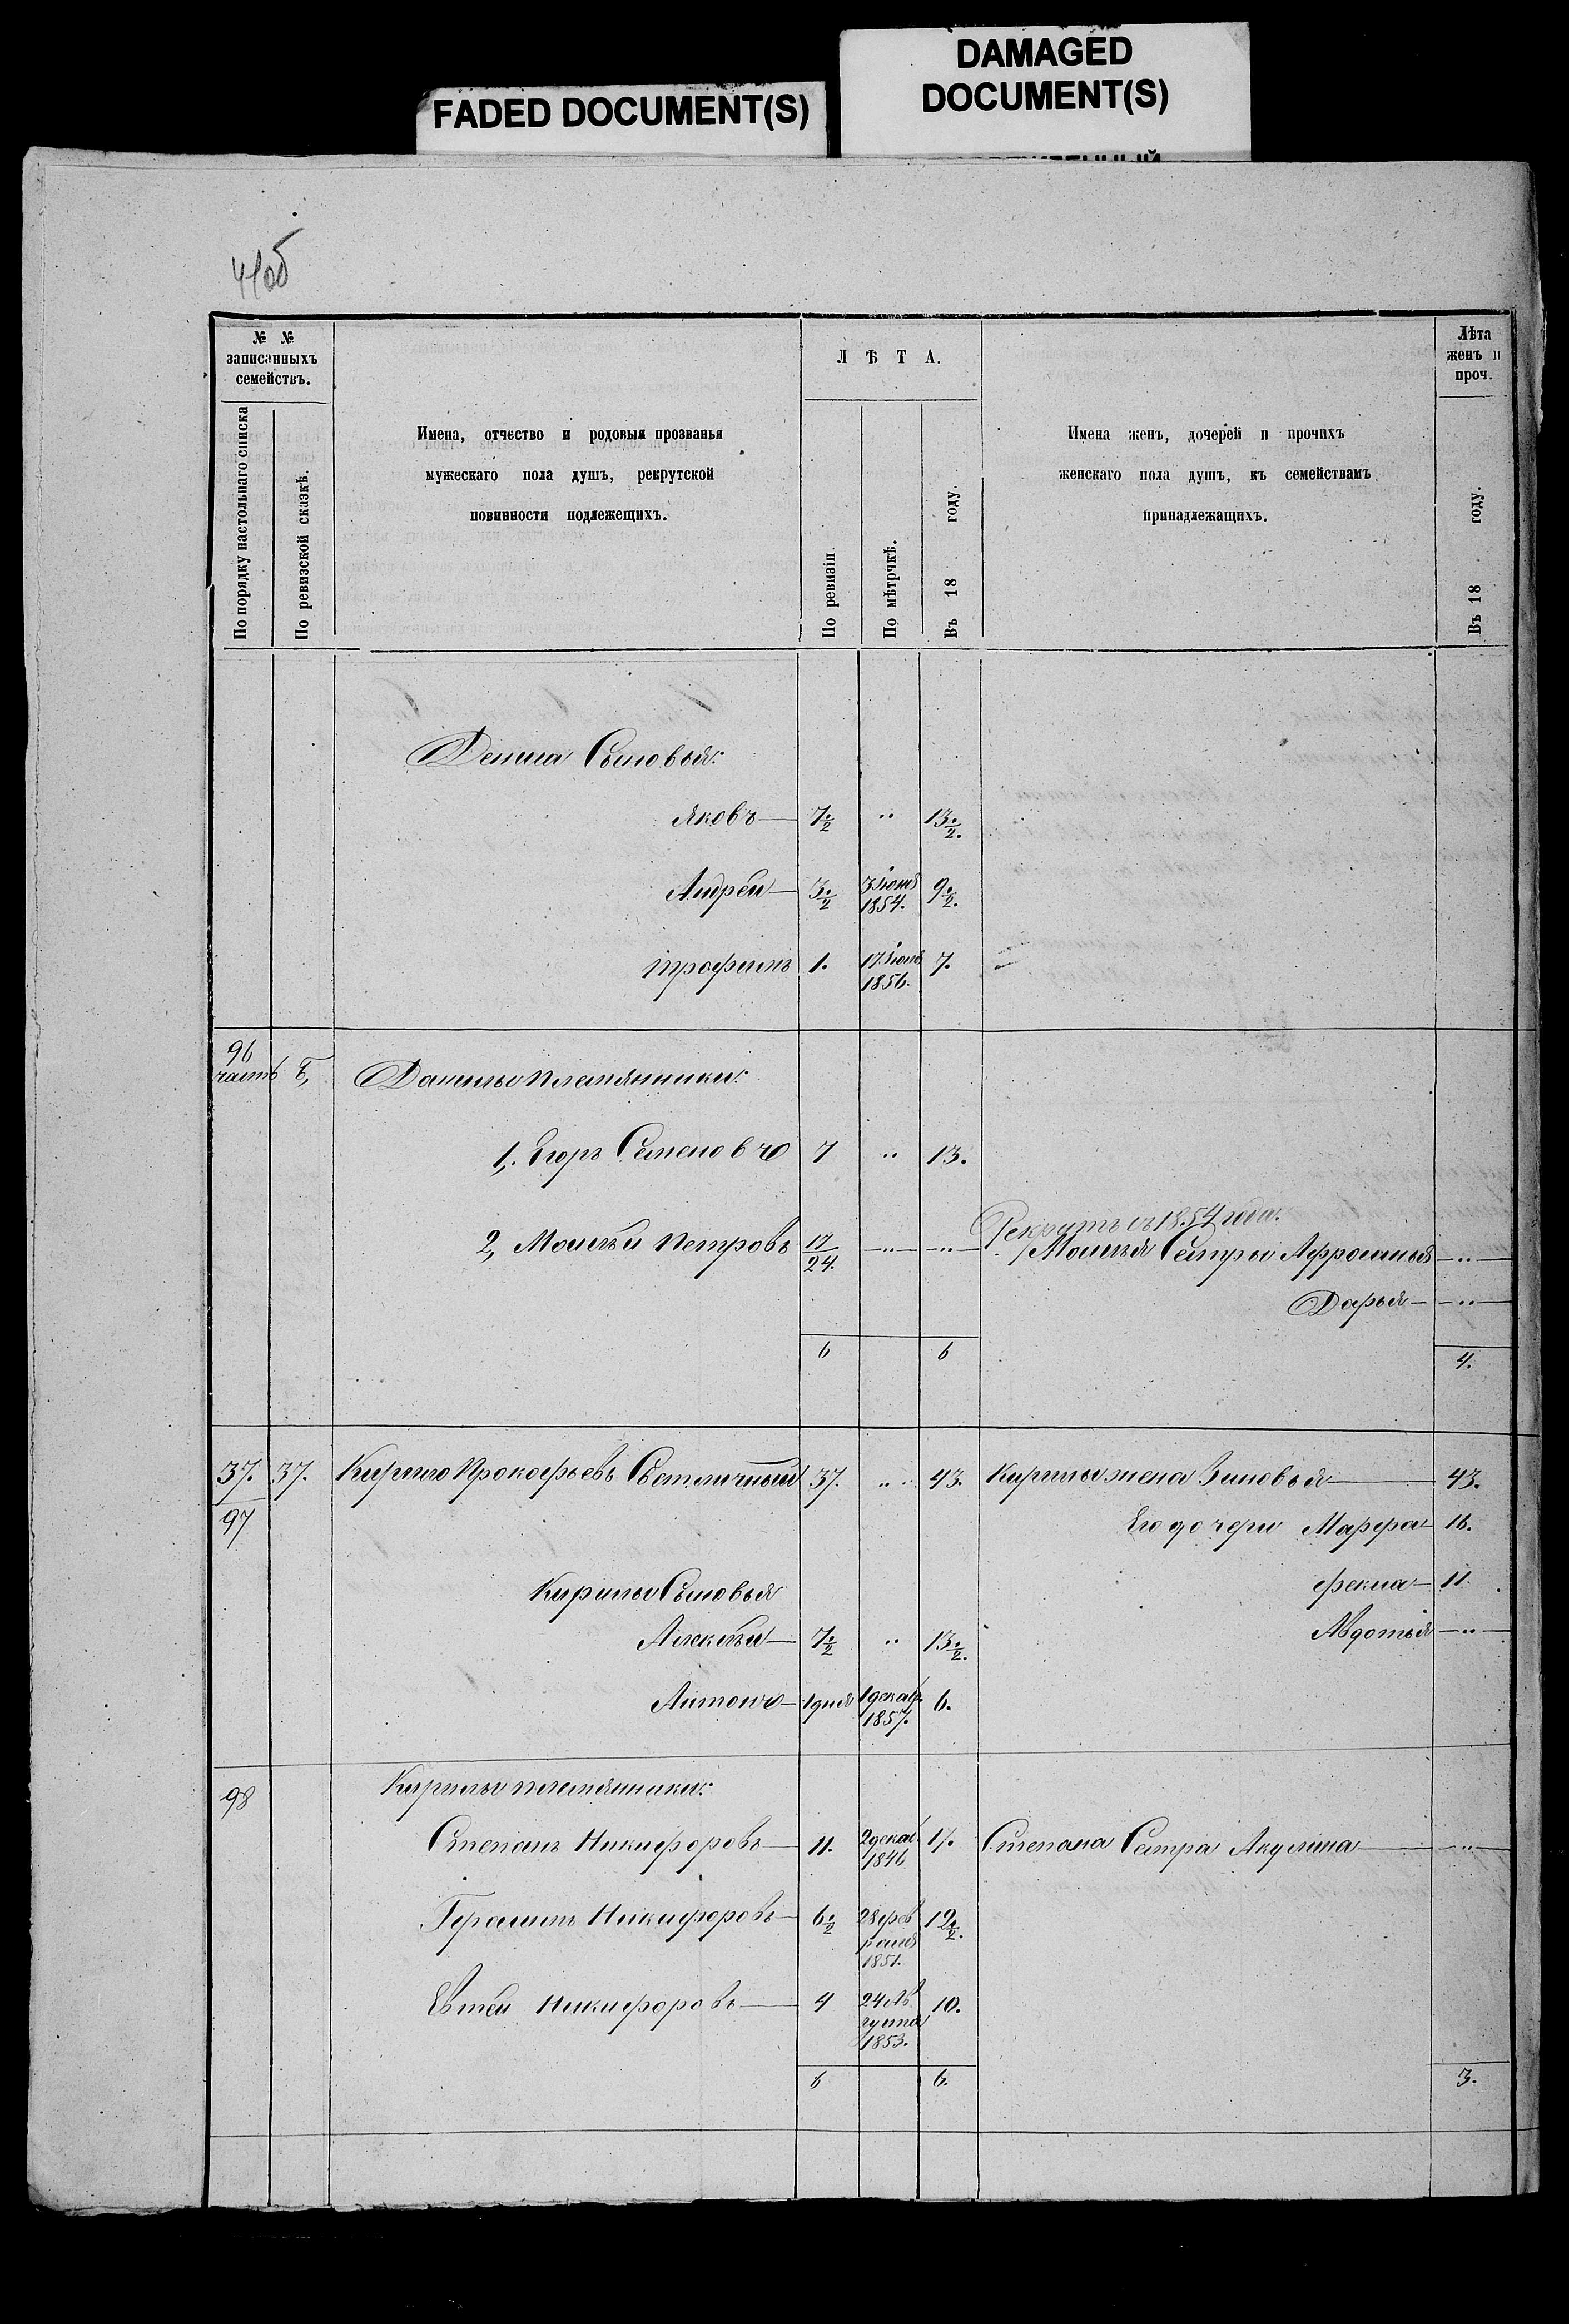 FADED DOCUMENT(S)
DAMAGED
DOCUMENT(S)
41об
№ №
записанныхъ
семействъ.
По порядку настольнаго списка
По ревизской сказкѣ.
Имена, отчество и родовыя прозванья
мужескаго пола душъ, рекрутской
повинности подлежещихъ.
ЛѢТА.
По ревизіи
По мѣтрчкѣ.
Въ 18 году.
Имена женъ, дочерей и прочихъ
женскаго пола душъ, къ семействамъ
принадлежащихъ.
Лѣта
женъ и
проч.
Въ 18 году.
Дениса Сыновья:
Яковъ — 7½ " 13½.
Андрей — 3½ 3 Іюня 1854. 9½.
Трофимъ 1. 17 Іюля 1856. 7.
96
часть Б, Данилы племянники:
1, Егоръ Семеновъ 7 " 13.
Рекрутъ съ 1854 года.
2, Мосѣй Петровъ 17/24. — " — — " — Мосѣя Сестры Афросинья — " —
Дарья — " —
6 6 4.
37. 37. Кирило Прокофьевъ Светличный 37. " 43. Кирилы жена Зиновья — 43.
97 Его дочери Марфа 16.
Кирилы Сыновья Фекла — 11.
Алексѣй — 7½ " 13½. Авдотья — " —
Антонъ — 1 дня 1 декаб. 1857. 6.
98 Кирилы племянники:
Степанъ Никифоровъ — 11. 2 декаб. 1846 17. Степана Сестра Акулина — " —
Герасимъ Никифоровъ — 6½ 28 фев раля 1851. 12½.
Евтѣй Никифоровъ — 4 24 Ав густа 1853. 10.
6 6. 3.